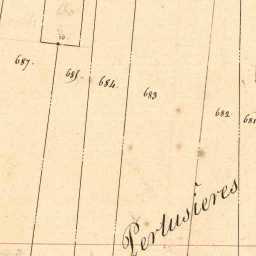 687.
685.
684.
683
682.
681
Pertusieres